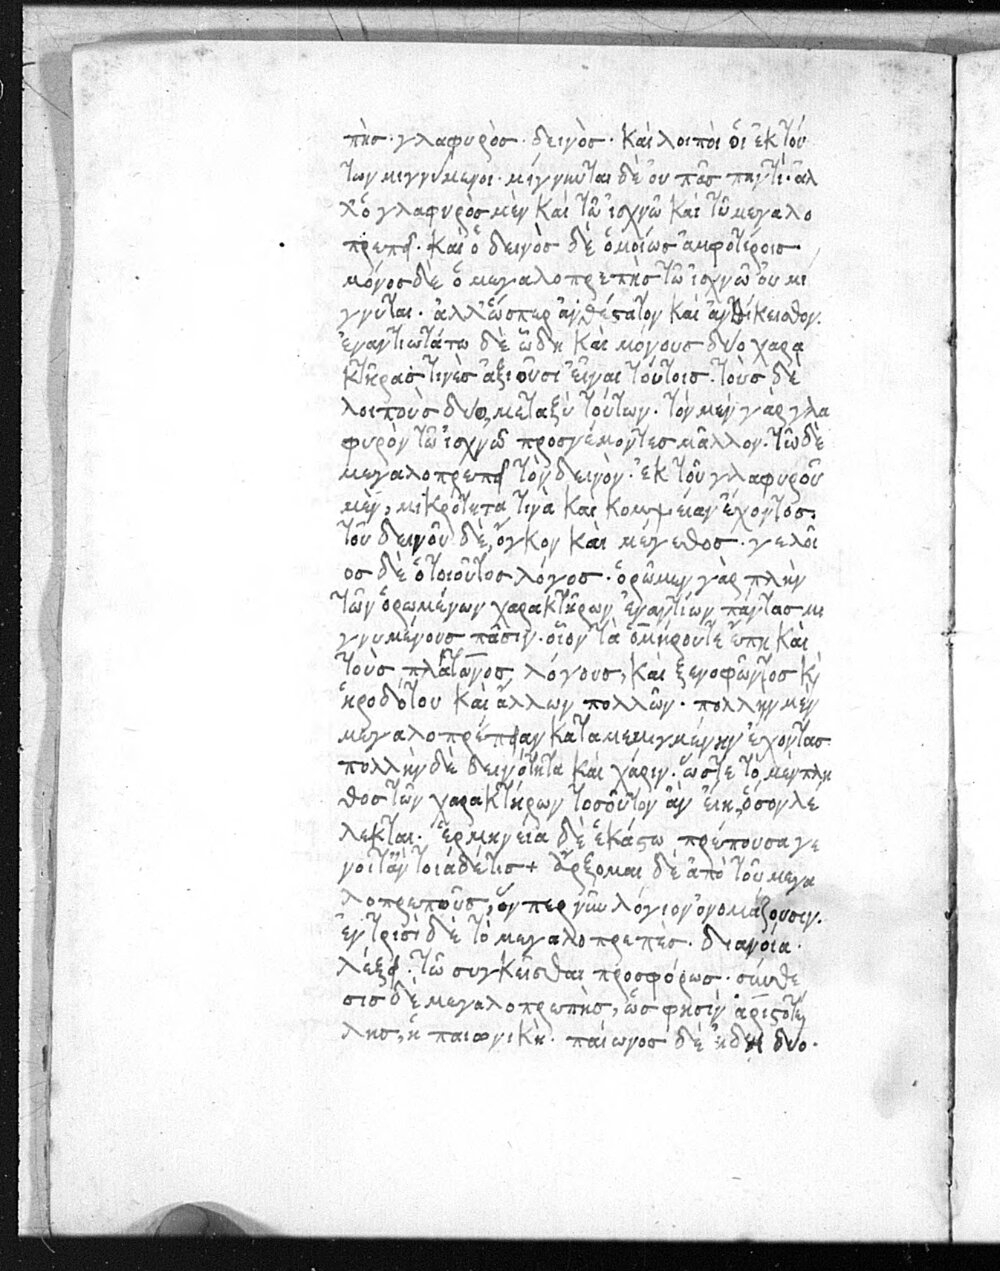 πὴσ· γλαφυρὸσ· δεινὸσ· καὶ λοιποὶ οἱ ἐκ τού
των μιγνύμενοι· μίγνυται δὲ ου πᾶσ παντί· ἀλ
λ' ὁ γλαφυρὸσ μὲν καὶ τῶ ἰσχνῶ καὶ τῶ μεγαλο
πρεπεῖ· καὶ ὁ δεινὸσ δὲ ὁμοίωσ ἀμφοτέροισ
μόνοσ δὲ ὁ μεγαλοπρεπὴσ τῶ ἰσχνῶ ὀυ μί
γνυται· ἀλλ' ὥσπερ ἀνθέστατον καὶ ἀντίκεισθον·
ἐναντιωτάτω δὲ ὥδη καὶ μόνουσ δυο χαρα
κτῆρασ τινὲσ ἀξιοῦσι εἶναι τούτοισ· τοὺσ δὲ
λοιποὺσ δυο, μεταξὺ τούτων· τὸν μὲν γὰρ γλα
φυρὸν τῶ ἰσχνῶ προσνέμοντεσ μᾶλλον· τῶ δὲ
μεγαλοπρεπεῖ τὸν δεινὸν· ἐκ τοῦ γλαφυροῦ
μὲν, μικρότητα τινὰ καὶ κομψείαν ἔχοντοσ·
τοῦ δεινοῦ δὲ, ὄγκον καὶ μέγεθοσ· γελοῖ
οσ δὲ ὁ τοιοῦτοσ λόγοσ· ὁρῶμεν γὰρ πλὴν
τῶν ὁρωμένων χαρακτήρων ἐναντίων πάντασ μι
γνυμένουσ πᾶσιν· οἷον τὰ ὁμήρου τὲ ἔπη καὶ
τοὺσ πλάτωνοσ λόγουσ, καὶ ξενοφῶντοσ κὶ
ἡροδότου καὶ ἄλλων πολλῶν· πολλὴν μὲν
μεγαλοπρέπειαν καταμεμιγμένην ἔχοντασ
πολλὴν δὲ δεινότητα καὶ χάριν· ὥστε τὸ μὲν πλῆ
θοσ τῶν χαρακτήρων τοσοῦτον ἂν εἴη, ὅσον λε
λεκται· ἑρμηνεία δὲ ἑκάστω πρέπουσα γέ
νοιτ' ἂν τοιάδε τισ + ἄρξομαι δὲ ἀπὸ τοῦ μεγα
λοπρεποῦσ, ὅν περ νῦν λόγιον ὀνομάζουσιν·
ἐν τρισὶ δὲ τὸ μεγαλοπρεπὲσ· διανοία·
λέξει· τῶ συγκεῖσθαι προσφόρωσ· σύνθε
σισ δὲ μεγαλοπρεπὴσ, ὥσ φησὶν ἀριστοτέ
λησ, ἡ παιωνικὴ· παίωνοσ δὲ εἴδη δυο·